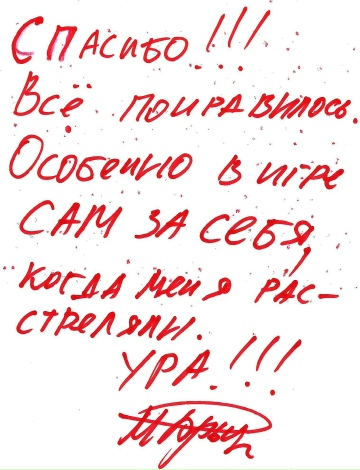 Спасибо!!!
Всё понравилось.
Особенно в игре
сам за себя,
когда меня рас-
стреляли.
Ура!!!